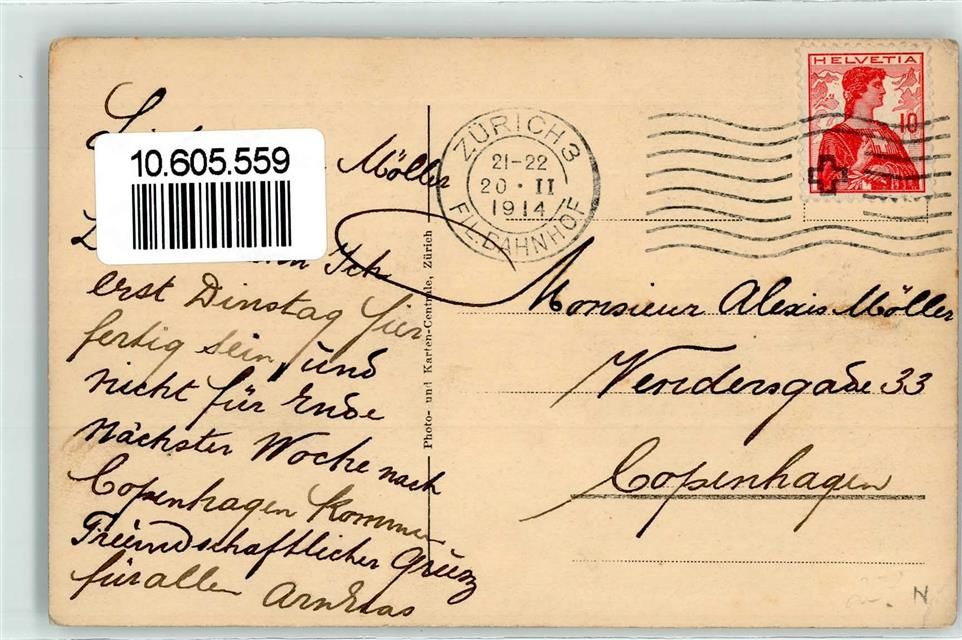 10.605.559
Möller
Ich
erst Dinstag hier
fertig sein, und
nicht für Ende
nächster Woche nach
Copenhagen kommen
Freundschaftlicher Grusz
für allen
Photo- und Karten-Centrale, Zürich
ZÜRICH 3
21-22
20 · II
1914
FIL. BAHNHOF
HELVETIA
10
Monsieur Alexis Möller
Vendersgade 33
Copenhagen
N